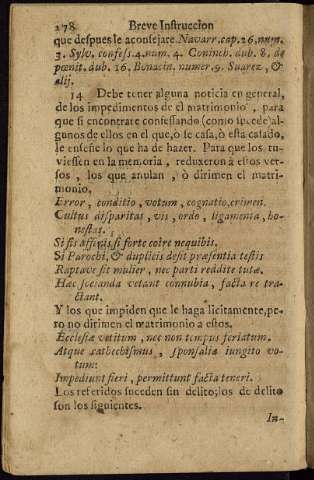 278 Breve Instruccion
que despues le aconsejare Navarr. cap. 26. num.
3. Sylv. confess. 4. num. 4. Coninch. dub. 8. de
pœnit. dub. 16. Bonacin. numer. 9. Suarez, &
alij.
14 Debe tener alguna noticia en general,
de los impedimentos del matrimonio, para
que si encontrare confessando (como sucede) al-
gunos de ellos en el que, ò se casa, ò està casado,
le enseñe lo que ha de hazer. Para que los tu-
viessen en la memoria, reduxeron à estos ver-
sos, los que anulan, ò dirimen el matri-
monio,
Error, conditio, votum, cognatio, crimen.
Cultus disparitas, vis, ordo, ligamenia, ho-
nestas.
Si sis affinis, si forte coire nequibis,
Si Parochi, & duplicis desit præsentia testis
Raptave sit mulier, nec parti reddite tutæ.
Hæc socianda vetant connubia, facta re tra-
ctant.
Y los que impiden que le haga licitamente, pe-
ro no dirimen el matrimonio a estos.
Ecclesiæ vetitum, nec non tempus feriatum.
Atque cathechismus, sponsalia iungito vo-
tum:
Impediunt fieri, permittunt facta teneri.
Los referidos suceden sin delito; los de delito
son los siguientes.
In-